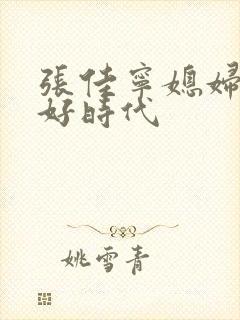 張佳寧媳婦
好時代
姚雪青